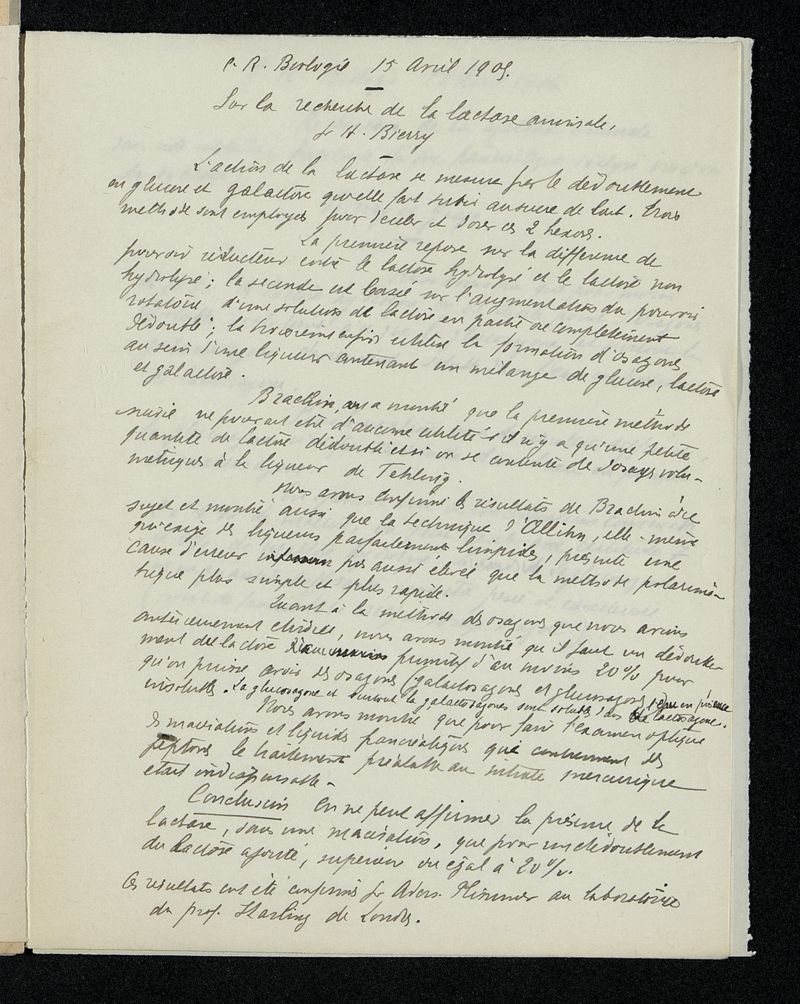 C. R. Biologie 15 Avril 1905.
Sur la recherche de la lactase animale,
Pr H. Bierry
L'action de la lactase se mesure par le dédoublement
en glucose et galactose qu'elle fait subir au sucre de lait. Trois
méthodes sont employées pour déceler et doser ces 2 hexoses.
La première repose sur la différence de
pouvoir réducteur entre le lactose hydrolysé et le lactose non
hydrolysé ; la seconde est basée sur l'augmentation du pouvoir
rotatoire d'une solution de lactose en partie ou complètement
dédoublé ; la troisième enfin utilise la formation d'osazones
au sein d'une liqueur contenant un mélange de glucose, lactose
et galactose.
Brachin, a montré que la première méthode
ne pouvait être d'aucune utilité s'il n'y a qu'une petite
quantité de lactose dédoublé et si on se contente de dosages volu-
métriques à la liqueur de Fehling.
Nous avons confirmé les résultats de Brachin à ce
sujet et montré aussi que la technique d'Allihn, elle-même
qui exige des liqueurs parfaitement limpides, présente une
cause d'erreur pas aussi élevée que la méthode polarimé-
trique plus simple et plus rapide.
Quant à la méthode des osazones que nous avions
antérieurement étudiée, nous avons montré qu'il faut un dédouble-
ment de lactose primitif d'au moins 20% pour
qu'on puisse avoir des osazones (galactosazones et glucosazones) en présence
insolubles. La glucosazone et surtout la galactosazone sont solubles dans la lactosazone.
Nous avons montré que pour faire l'examen optique
de macérations et liquides pancréatiques qui contiennent des
peptones le traitement préalable au nitrate mercurique
était indispensable -
Conclusions On ne peut affirmer la présence de la
lactase, dans une macération, que pour un dédoublement
du lactose ajouté, supérieur ou égal à 20%.
Ces résultats ont été confirmés pr Aders Plimmer au laboratoire
du prof. Starling de Londres.